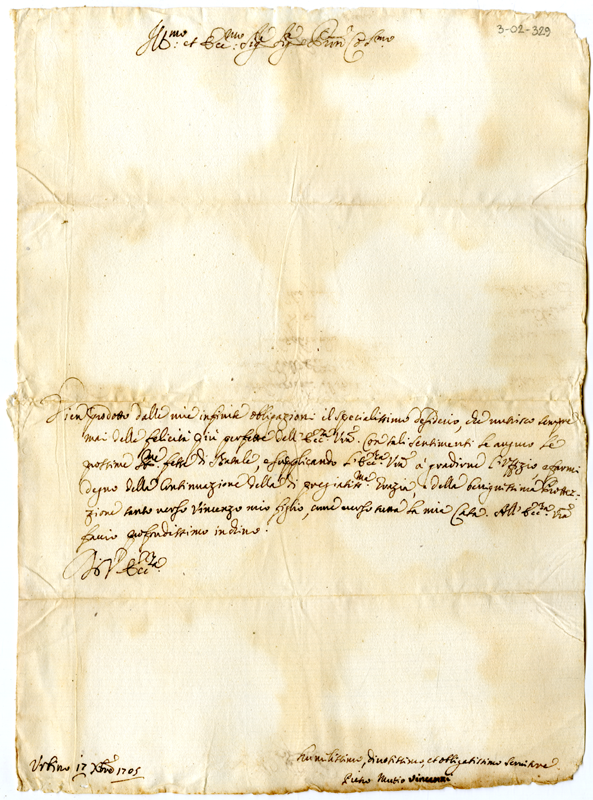 3-02-329
Ill:mo et Ecc:mo Sig:re Sig:re P̃rõn Col:mo
Vien prodotto dalle mie infinite obbligazioni il specialissimo desiderio, che nutrisco sempre
mai delle felicità più perfette dell'Ecc:za V̄ra. Con tali sentimenti le auguro le
prossime S:me feste di Natale, e supplicando l'Ecc:za V̄ra a gradirne l'offizio e farmi
degno della continuazione della di pregiatiss:ma Grazia, e della benignissima Protte-
zione tanto verso Vincenzo mio figlio, come verso tutta la mia Casa. All'Ecc:za V̄ra
faccio profondissimo inchino.
Di V. Ecc:za
Urbino 17 Xbre 1705
Humilissimo, divotissimo, et obligatissimo Servitore
Pietro Mutio Vincenzi